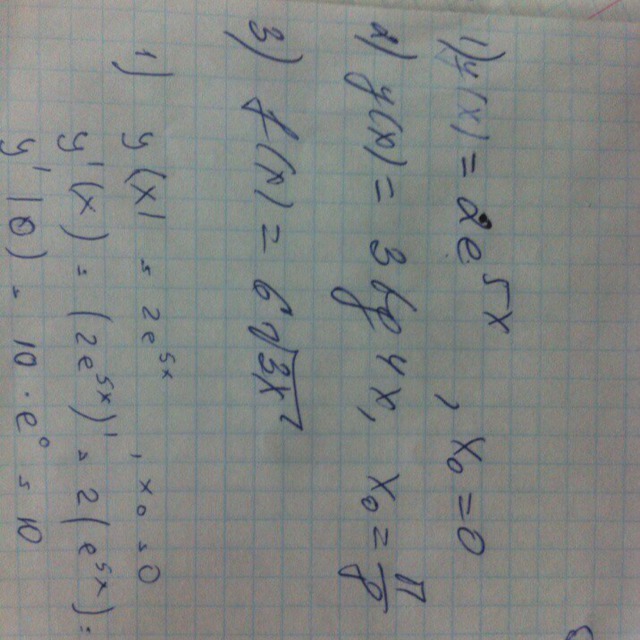 1) y(x) = 2e^5x, x₀ = 0
2) y(x) = 3 tg 4x, x₀ = π/8
3)
1) y(x) = 2e^5x, x₀ = 0
y'(x) = (2e^5x)' = 2(e^5x)' =
y'(0) = 10 · e⁰ = 10